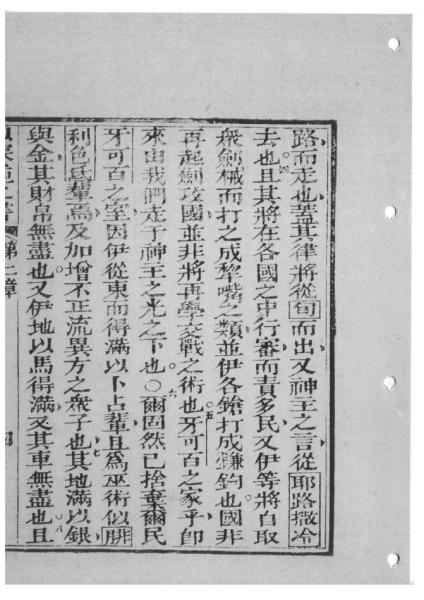 路而走也蓋其律將從旬而出又神王之言從耶路撒冷
去也且其將在各國之中行審而責多民又伊等將自取
衆劍械而打之成犂嘴之類並伊各鎗打成鐮鈎也國非
再起劍攻國並非將再學交戰之術也牙可百之家乎卽
來由我們走于神王之光之下也〇爾固然已捨棄爾民
牙可百之室因伊從東而得滿以卜占輩且爲巫術似腓
利色氐輩焉及加增不正流異方之衆子也其地滿以銀
與金其財帛無盡也又伊地以馬得滿又其車無盡也且
之書 第二章